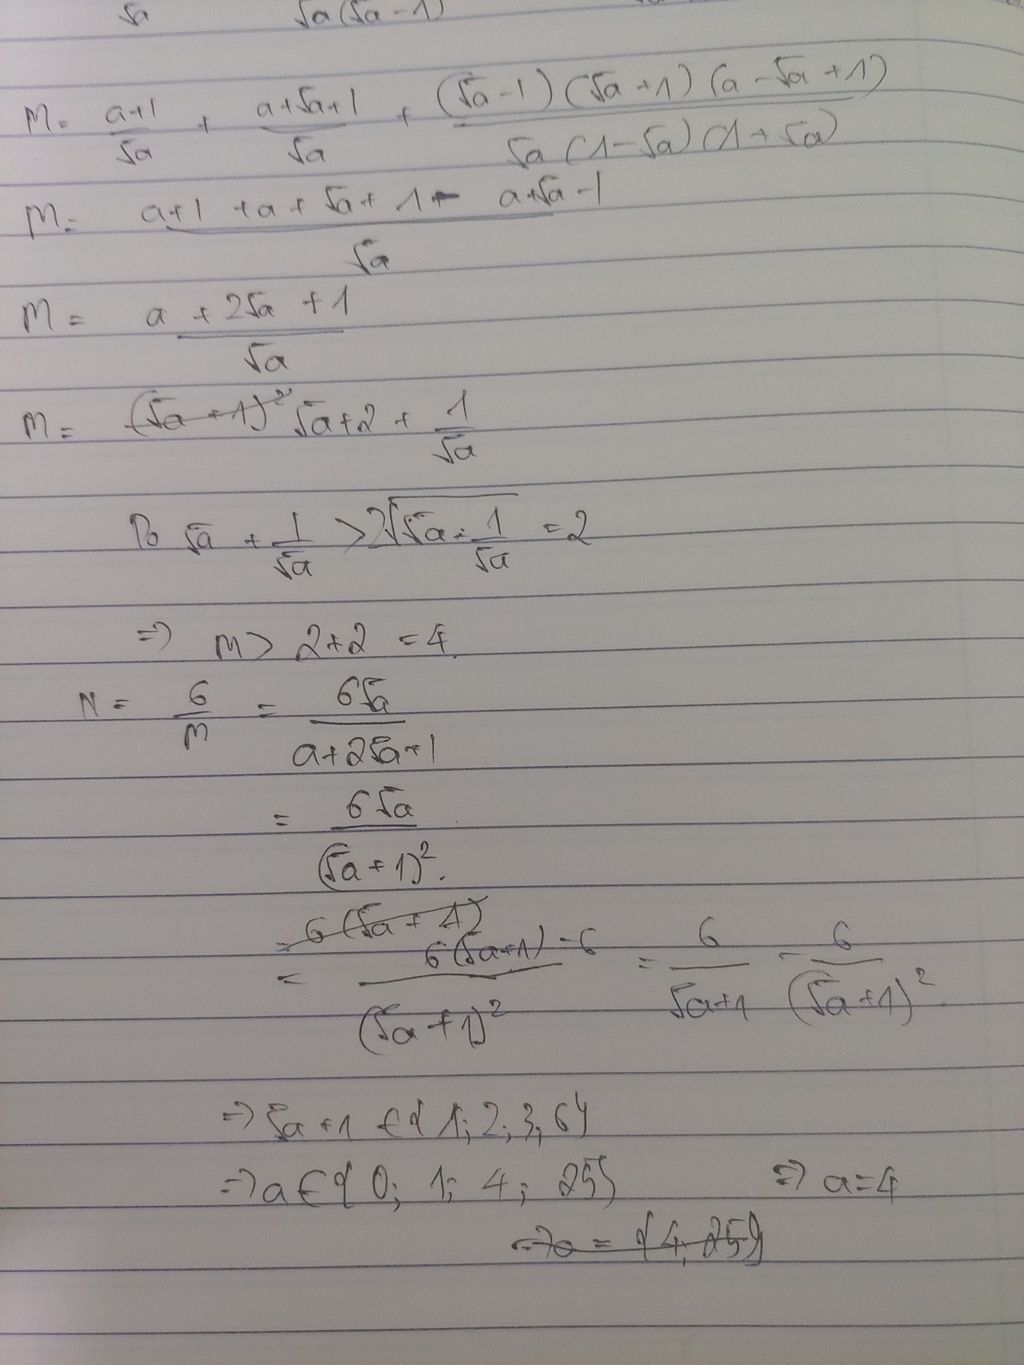 √a √a(√a-1)
M= (a+1)/√a + (a+√a+1)/√a + ((√a-1)(√a+1)(a-√a+1))/(√a(1-√a)(1+√a))
M= (a+1+a+√a+1- a+√a-1)/√a
M= (a+2√a+1)/√a
M= (√a+1)² √a+2+ 1/√a
Do √a + 1/√a > 2√(√a . 1/√a) =2
=> M> 2+2 =4.
N= 6/M = 6√a/(a+2√a+1)
= 6√a/(√a+1)².
= 6(√a+1)
= (6(√a+1)-6)/(√a+1)² = 6/(√a+1) - 6/(√a+1)².
=> √a+1 ∈{1;2;3;6}
=> a∈{0; 1; 4; 25} => a=4
=> a = {4,25}